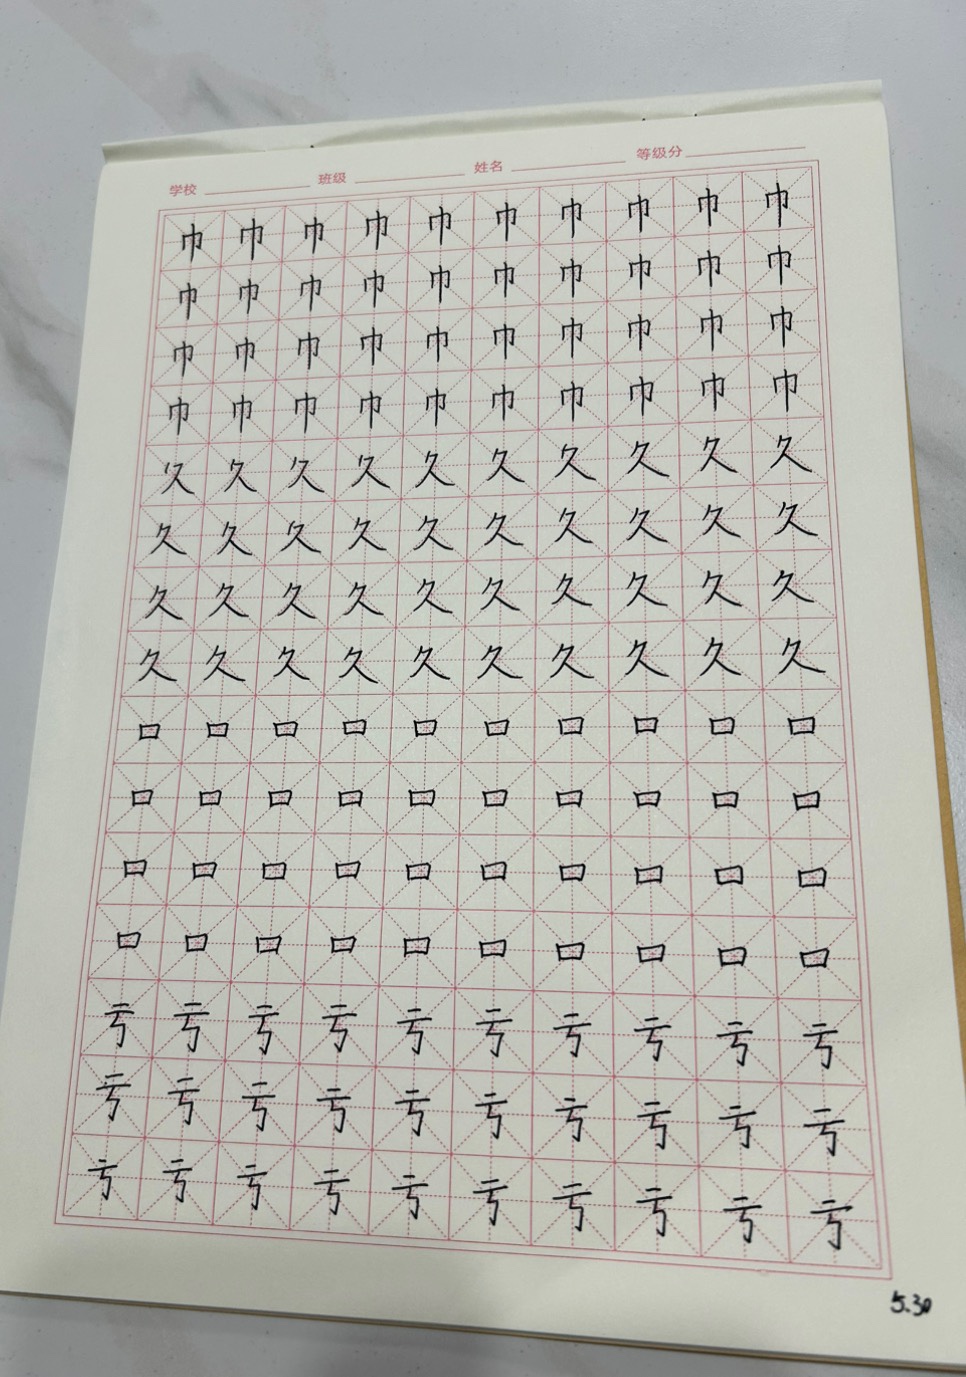 学校 班级 姓名 等级分
巾 巾 巾 巾 巾 巾 巾 巾 巾 巾
巾 巾 巾 巾 巾 巾 巾 巾 巾 巾
巾 巾 巾 巾 巾 巾 巾 巾 巾 巾
巾 巾 巾 巾 巾 巾 巾 巾 巾 巾
久 久 久 久 久 久 久 久 久 久
久 久 久 久 久 久 久 久 久 久
久 久 久 久 久 久 久 久 久 久
久 久 久 久 久 久 久 久 久 久
口 口 口 口 口 口 口 口 口 口
口 口 口 口 口 口 口 口 口 口
口 口 口 口 口 口 口 口 口 口
口 口 口 口 口 口 口 口 口 口
亏 亏 亏 亏 亏 亏 亏 亏 亏 亏
亏 亏 亏 亏 亏 亏 亏 亏 亏 亏
亏 亏 亏 亏 亏 亏 亏 亏 亏 亏
5.30